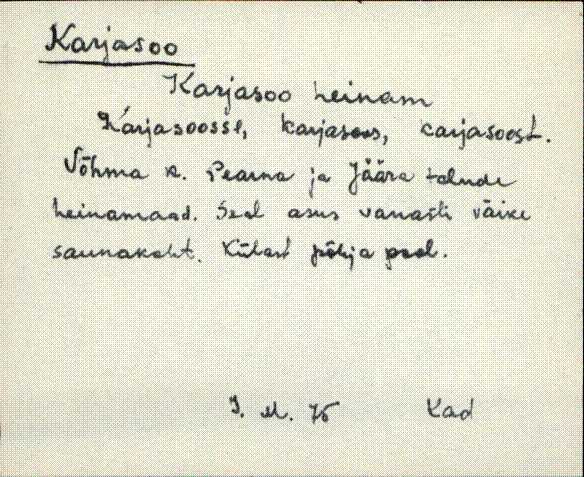 Karjasoo
Karjasoo heinam
Karjasoosse, karjasoos, carjasoost.
Võhma k. Pearna ja Jäära talude
heinamaad. Seal asus vanasti väike
saunakoht. Külast põhja pool.
J. M. 75 Kad